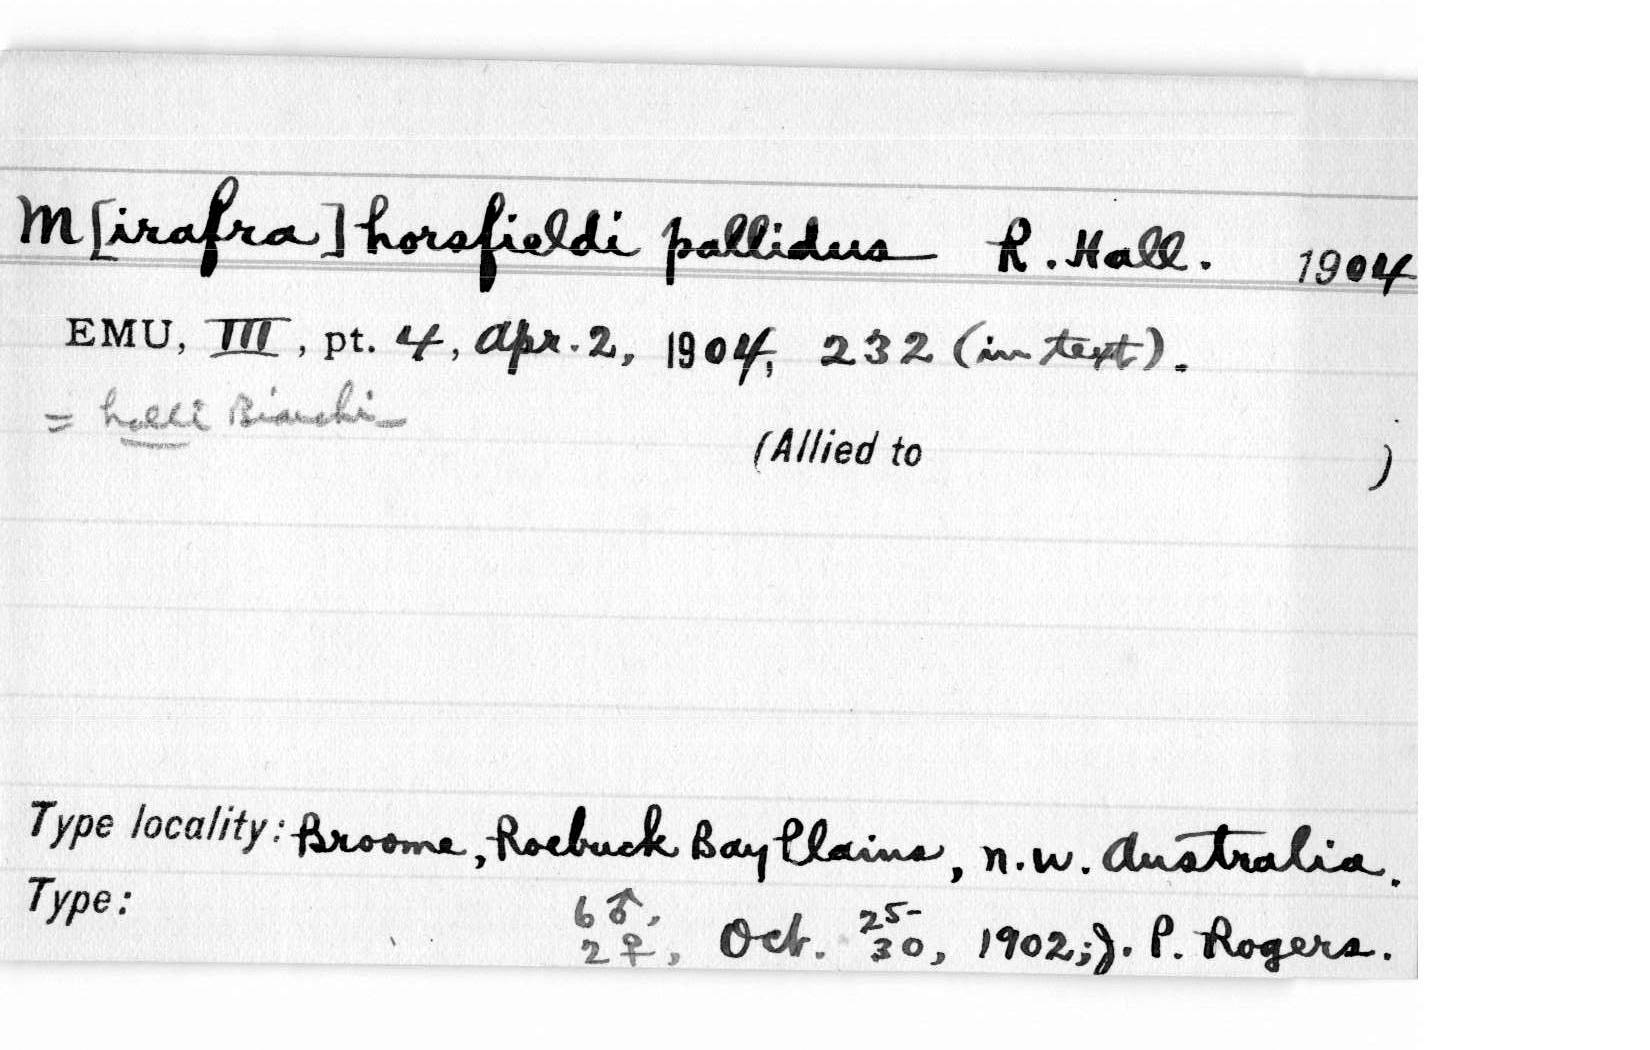 M[irafra] horsfieldi pallidus R. Hall. 1904
EMU, III, pt. 4, Apr. 2, 1904, 232 (in text).
= halli Bianchi
(Allied to )
Type locality: Broome, Roebuck Bay Plains, n.w. Australia.
Type: 6♂, 2♀, Oct. 25-30, 1902; J. P. Rogers.